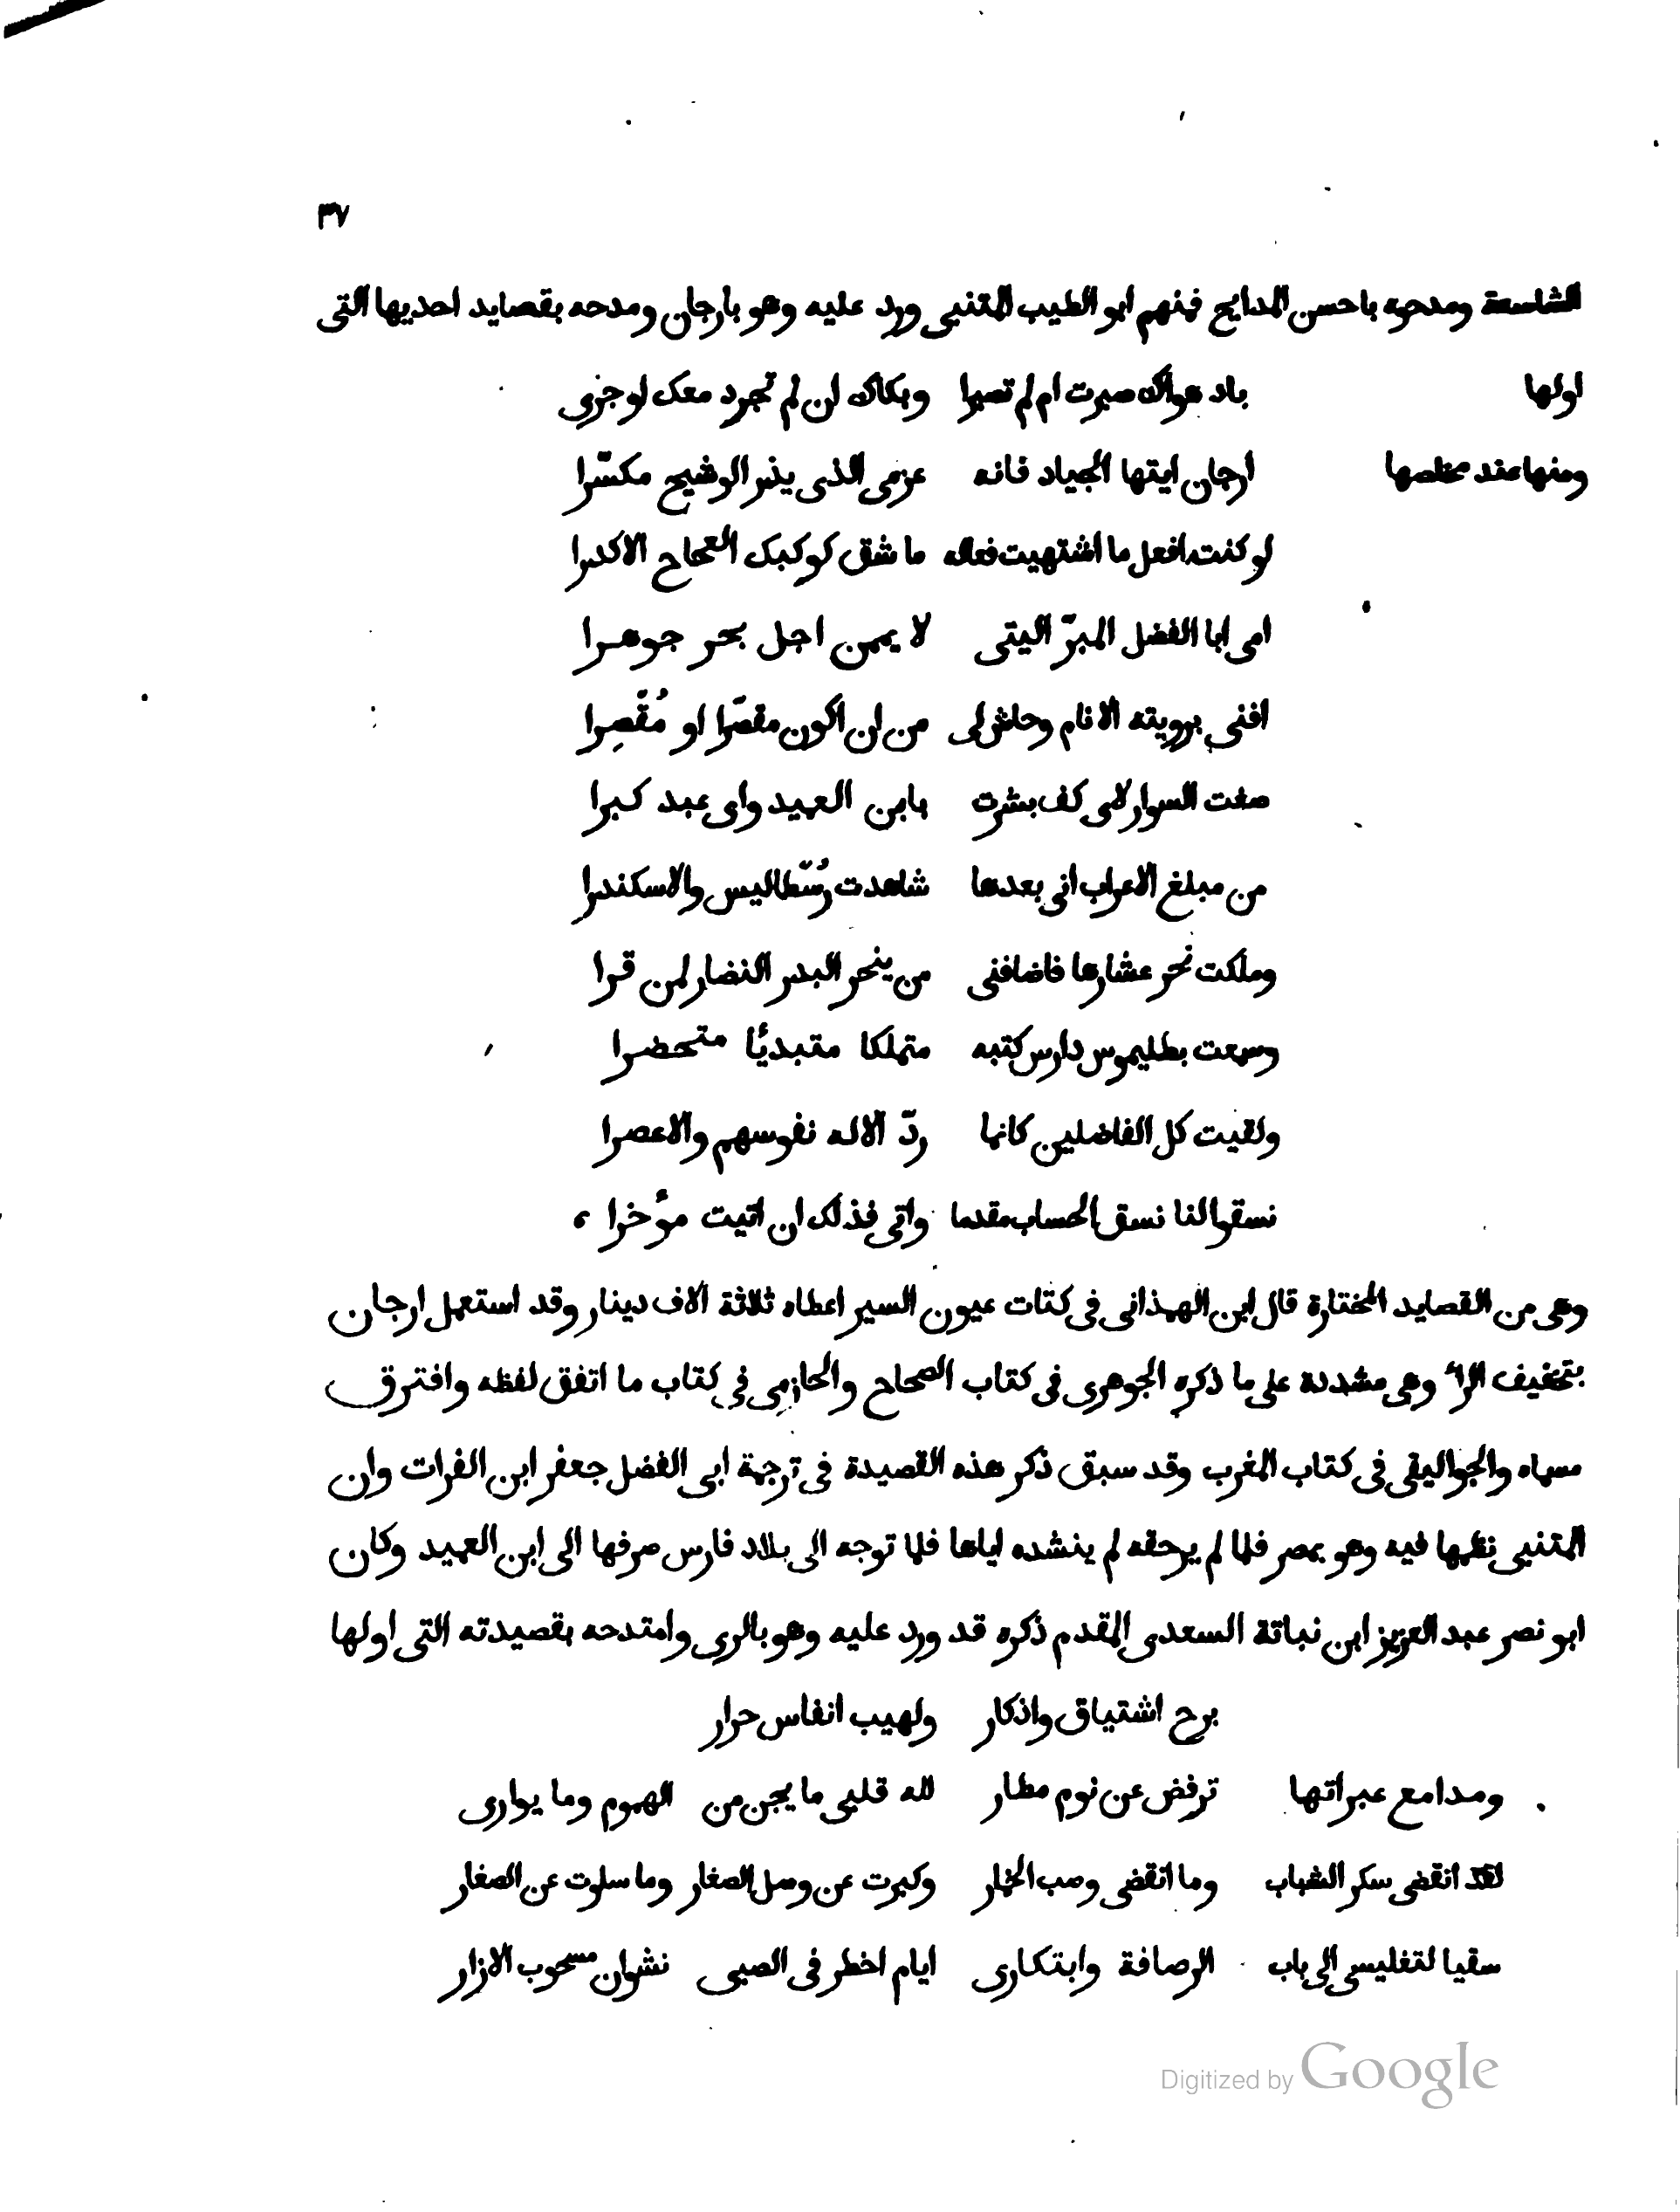 ٣٧
الشاسعة ومدحوه باحسن المدايح فمنهم ابو الطيب المتنبى ورد عليه وهو بارجان ومدحه بقصايد احديها التى
اولها باد هواك صبرت ام لم تصبرا وبكاك ان لم تجرد معك لو جزى
ومنها عند مخلصها ارجان ايتها الجياد فانه عزمى الذى يذر الوشيج مكسّرا
لو كنت افعل ما اشتهيت فعاله ما شق كوكبك العجاج الاكدرا
امى ابا الفضل المبرّ اليتى لا يممن اجل بحر جوهرا
افنى برويته الانام وحاش لى من ان اكون مقصّرا او مُقْصِرا
صغت السوار لاى كف بشرت بابن العميد واى عبد كبرا
من مبلغ الاعراب انى بعدها شاهدت رُسْطاليس والاسكندرا
وملكت نحر عشارها فاضافنى من ينحر البدر النضار لمن قرا
وسمعت بطليموس دارس كتبه متملكا متبديًا متحضرا
ولقيت كل الفاضلين كانما ردّ الاله نفوسهم والاعصرا
نسقوا لنا نسق الحساب مقدما واتى فذلك ان اتيت مؤخرا ،
وهى من القصايد المختارة قال ابن الهمذانى فى كتات عيون السير اعطاه ثلاثة الاف دينار وقد استعمل ارجان
بتخفيف الراء وهى مشددة على ما ذكره الجوهرى فى كتاب الصحاح والحازمى فى كتاب ما اتفق لفظه وافترق
مسماه والجواليقى فى كتاب المغرب وقد سبق ذكر هذه القصيدة فى ترجمة ابى الفضل جعفر ابن الفرات وان
المتنبى نظمها فيه وهو بمصر فلما لم يرحقه لم ينشده اياها فلما توجه الى بلاد فارس صرفها الى ابن العميد وكان
ابو نصر عبد العزيز ابن نباتة السعدى المقدم ذكره قد ورد عليه وهو بالرى وامتدحه بقصيدته التى اولها
برح اشتياق واذكار ولهيب انفاس حرار
ومدامع عبراتها ترفض عن نوم مطار لله قلبى ما يجن من الهموم وما يوارى
لقد انقضى سكر الشباب وما انقضى وصب الخمار وكبرت عن وصل الصغار وما سلوت عن الصغار
سقيا لتغليسى الى باب الرصافة وابتكارى ايام اخطر فى الصبى نشوان مسحوب الازار
Digitized by Google